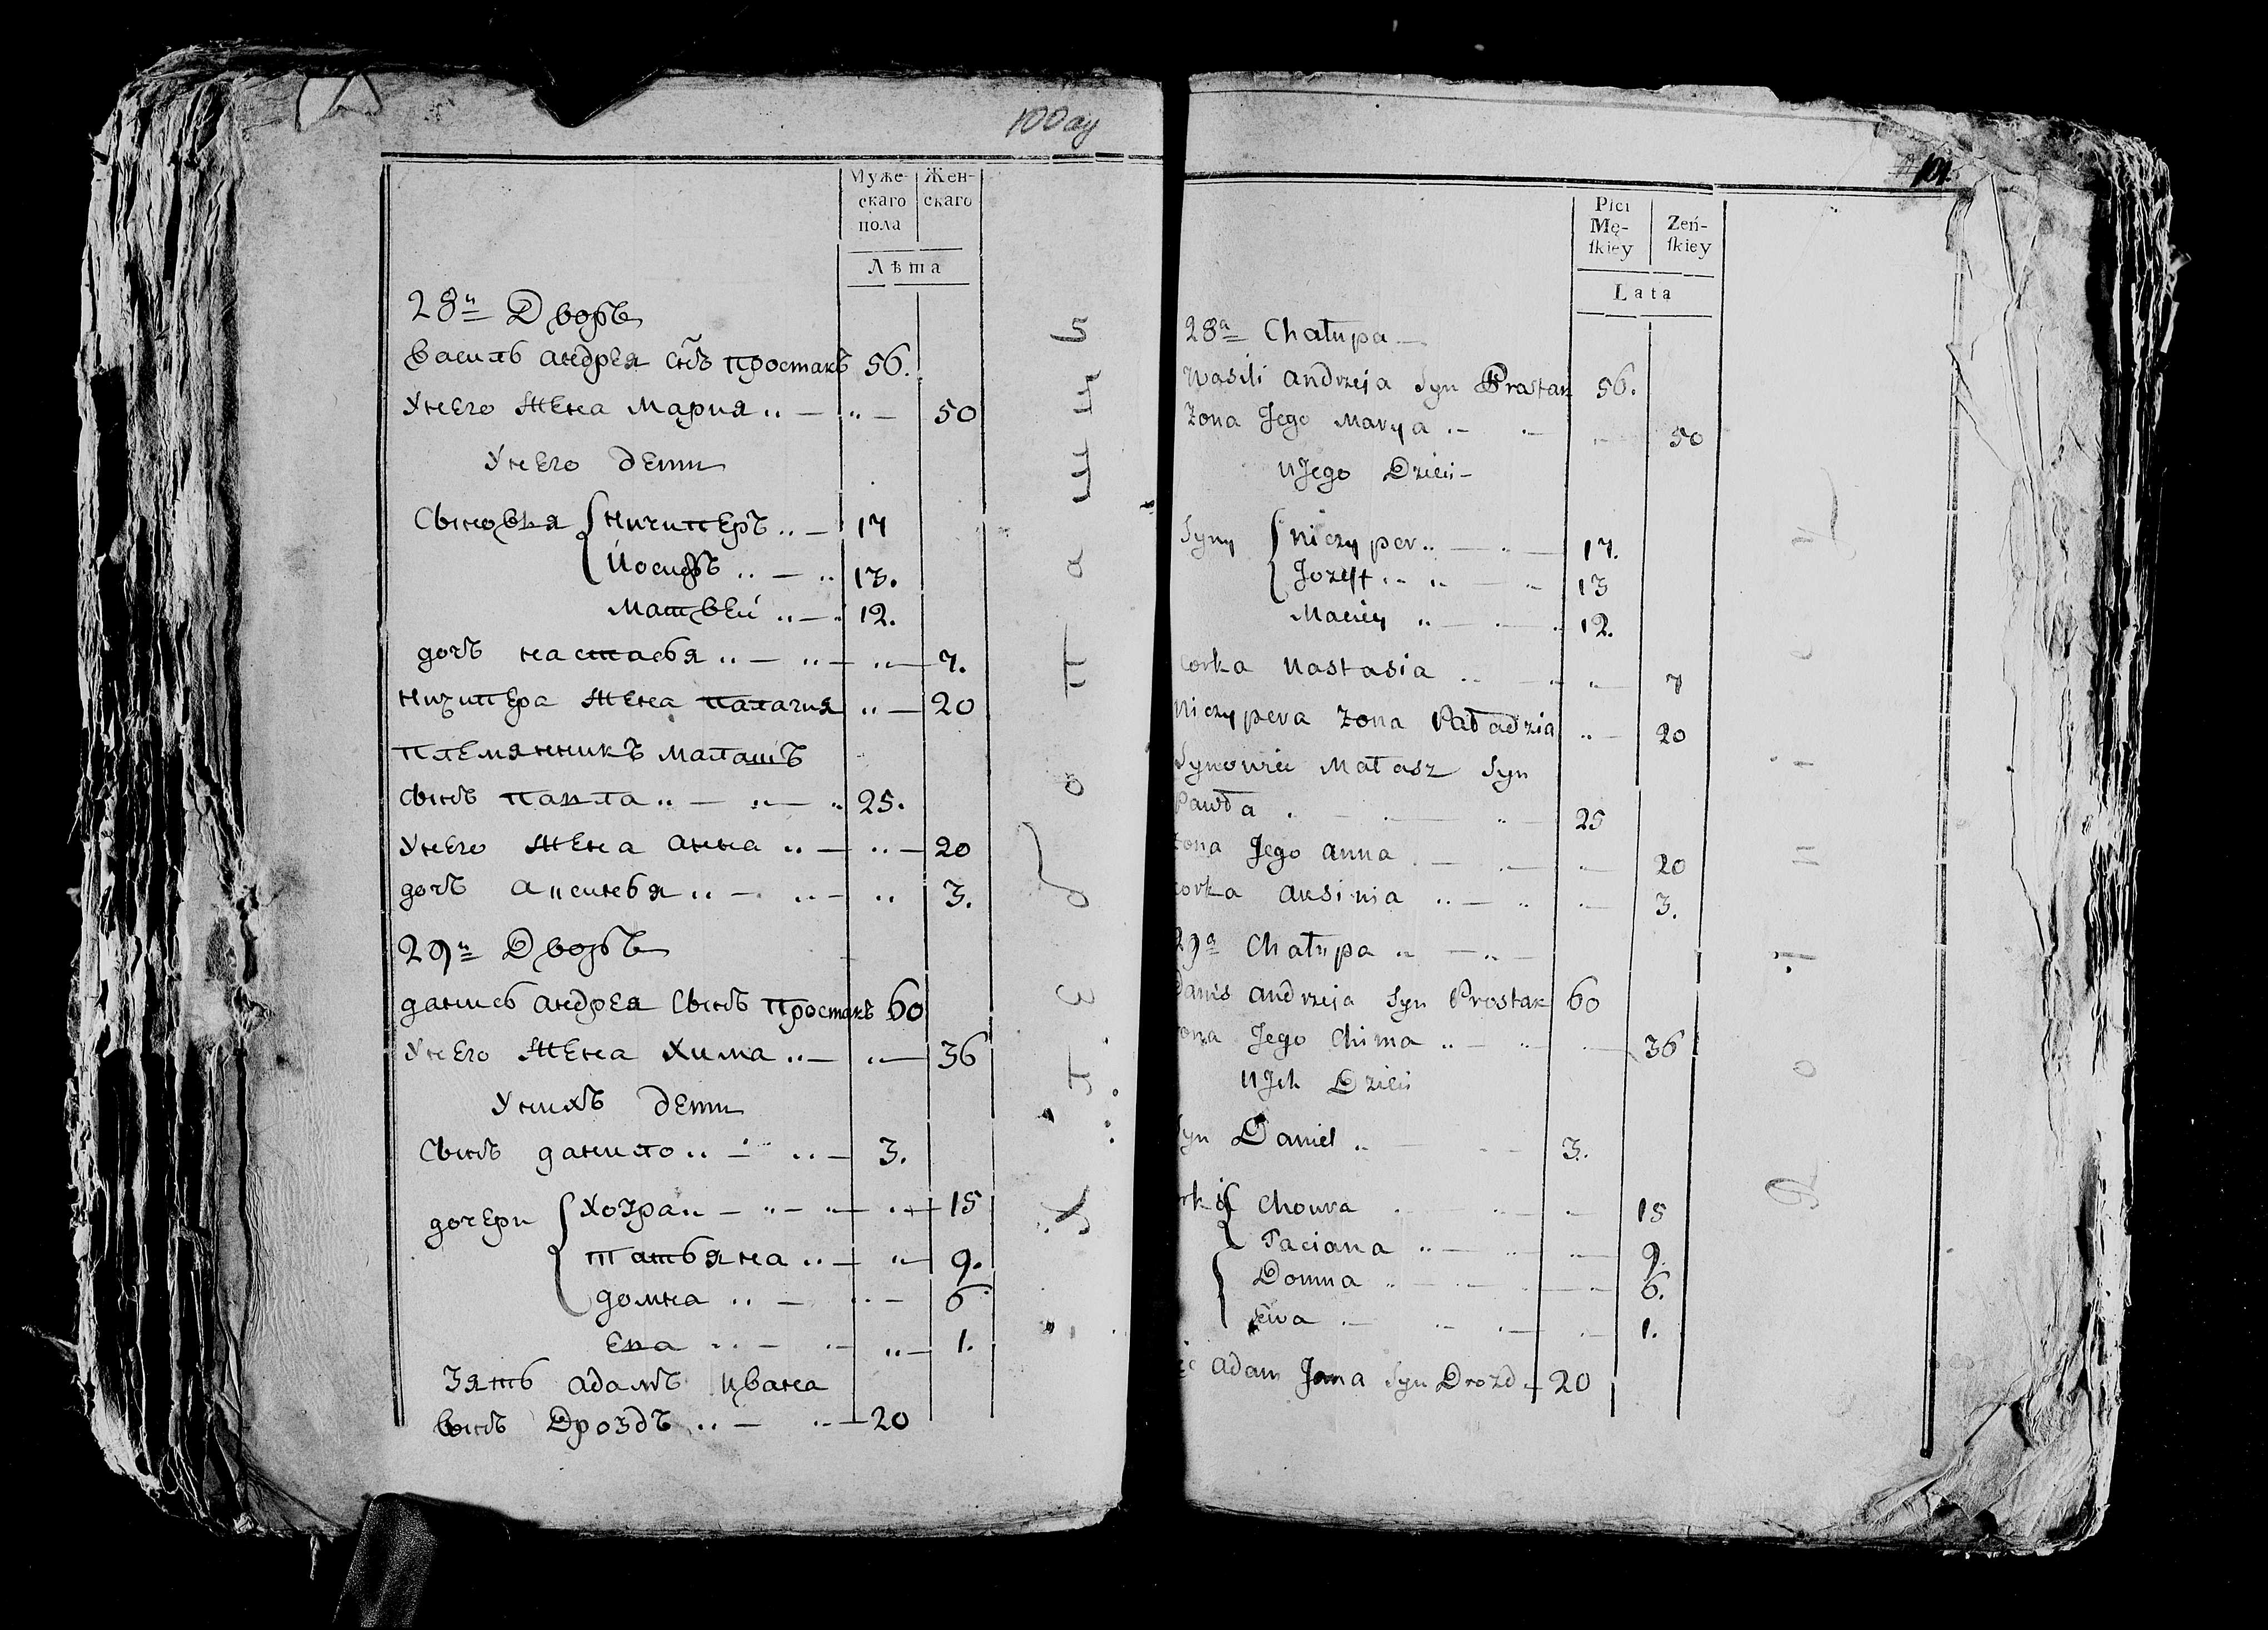 100 ау
Муже-
скаго
пола
Жен-
скаго
Лѣта
28й Дворъ
Василь андрея снъ простакъ 56.
Унего жена Мария 50
Унего дети
Сыновья Ничиперъ 17
Иосифъ 13.
Матвей 12.
дочъ настасья 7.
Ничипера жена палагия 20
племянникъ малашъ
сынъ павла 25.
Унего жена анна 20
дочъ аксинья 3.
29й Дворъ
данись андрея сынъ простакъ 60
Унего жена Хима 36
Унихъ дети
Сынъ данило 3.
дочери Хоўра 15
татьяна 9.
домна 6
Ева 1.
Зять адамъ ивана
сынъ Дроздъ 20
Хлебопашцы
101.
Płci
Mę-
skiey
Zeń-
skiey
Lata
28a Chałupa
Wasili andrzeja Syn Prastak 56.
Zona Jego Marya 50
u Jego Dzieci
Syny Niczyper 17.
Jozeff 13
Maciey 12.
corka Nastasia 7
Niczypera Zona Paładzia 20
Synowiec Małasz Syn
Pawła 25
żona Jego anna 20
corka aksinia 3.
29a Chałupa
Danis andrzeja Syn Prostak 60
żona Jego Chima 36
u Jch Dzieci
Syn Daniel 3.
Corki Chowra 15
Taciana 9.
Domna 6.
Ewa 1.
adam Jana Syn Drozd 20
Rolnicy